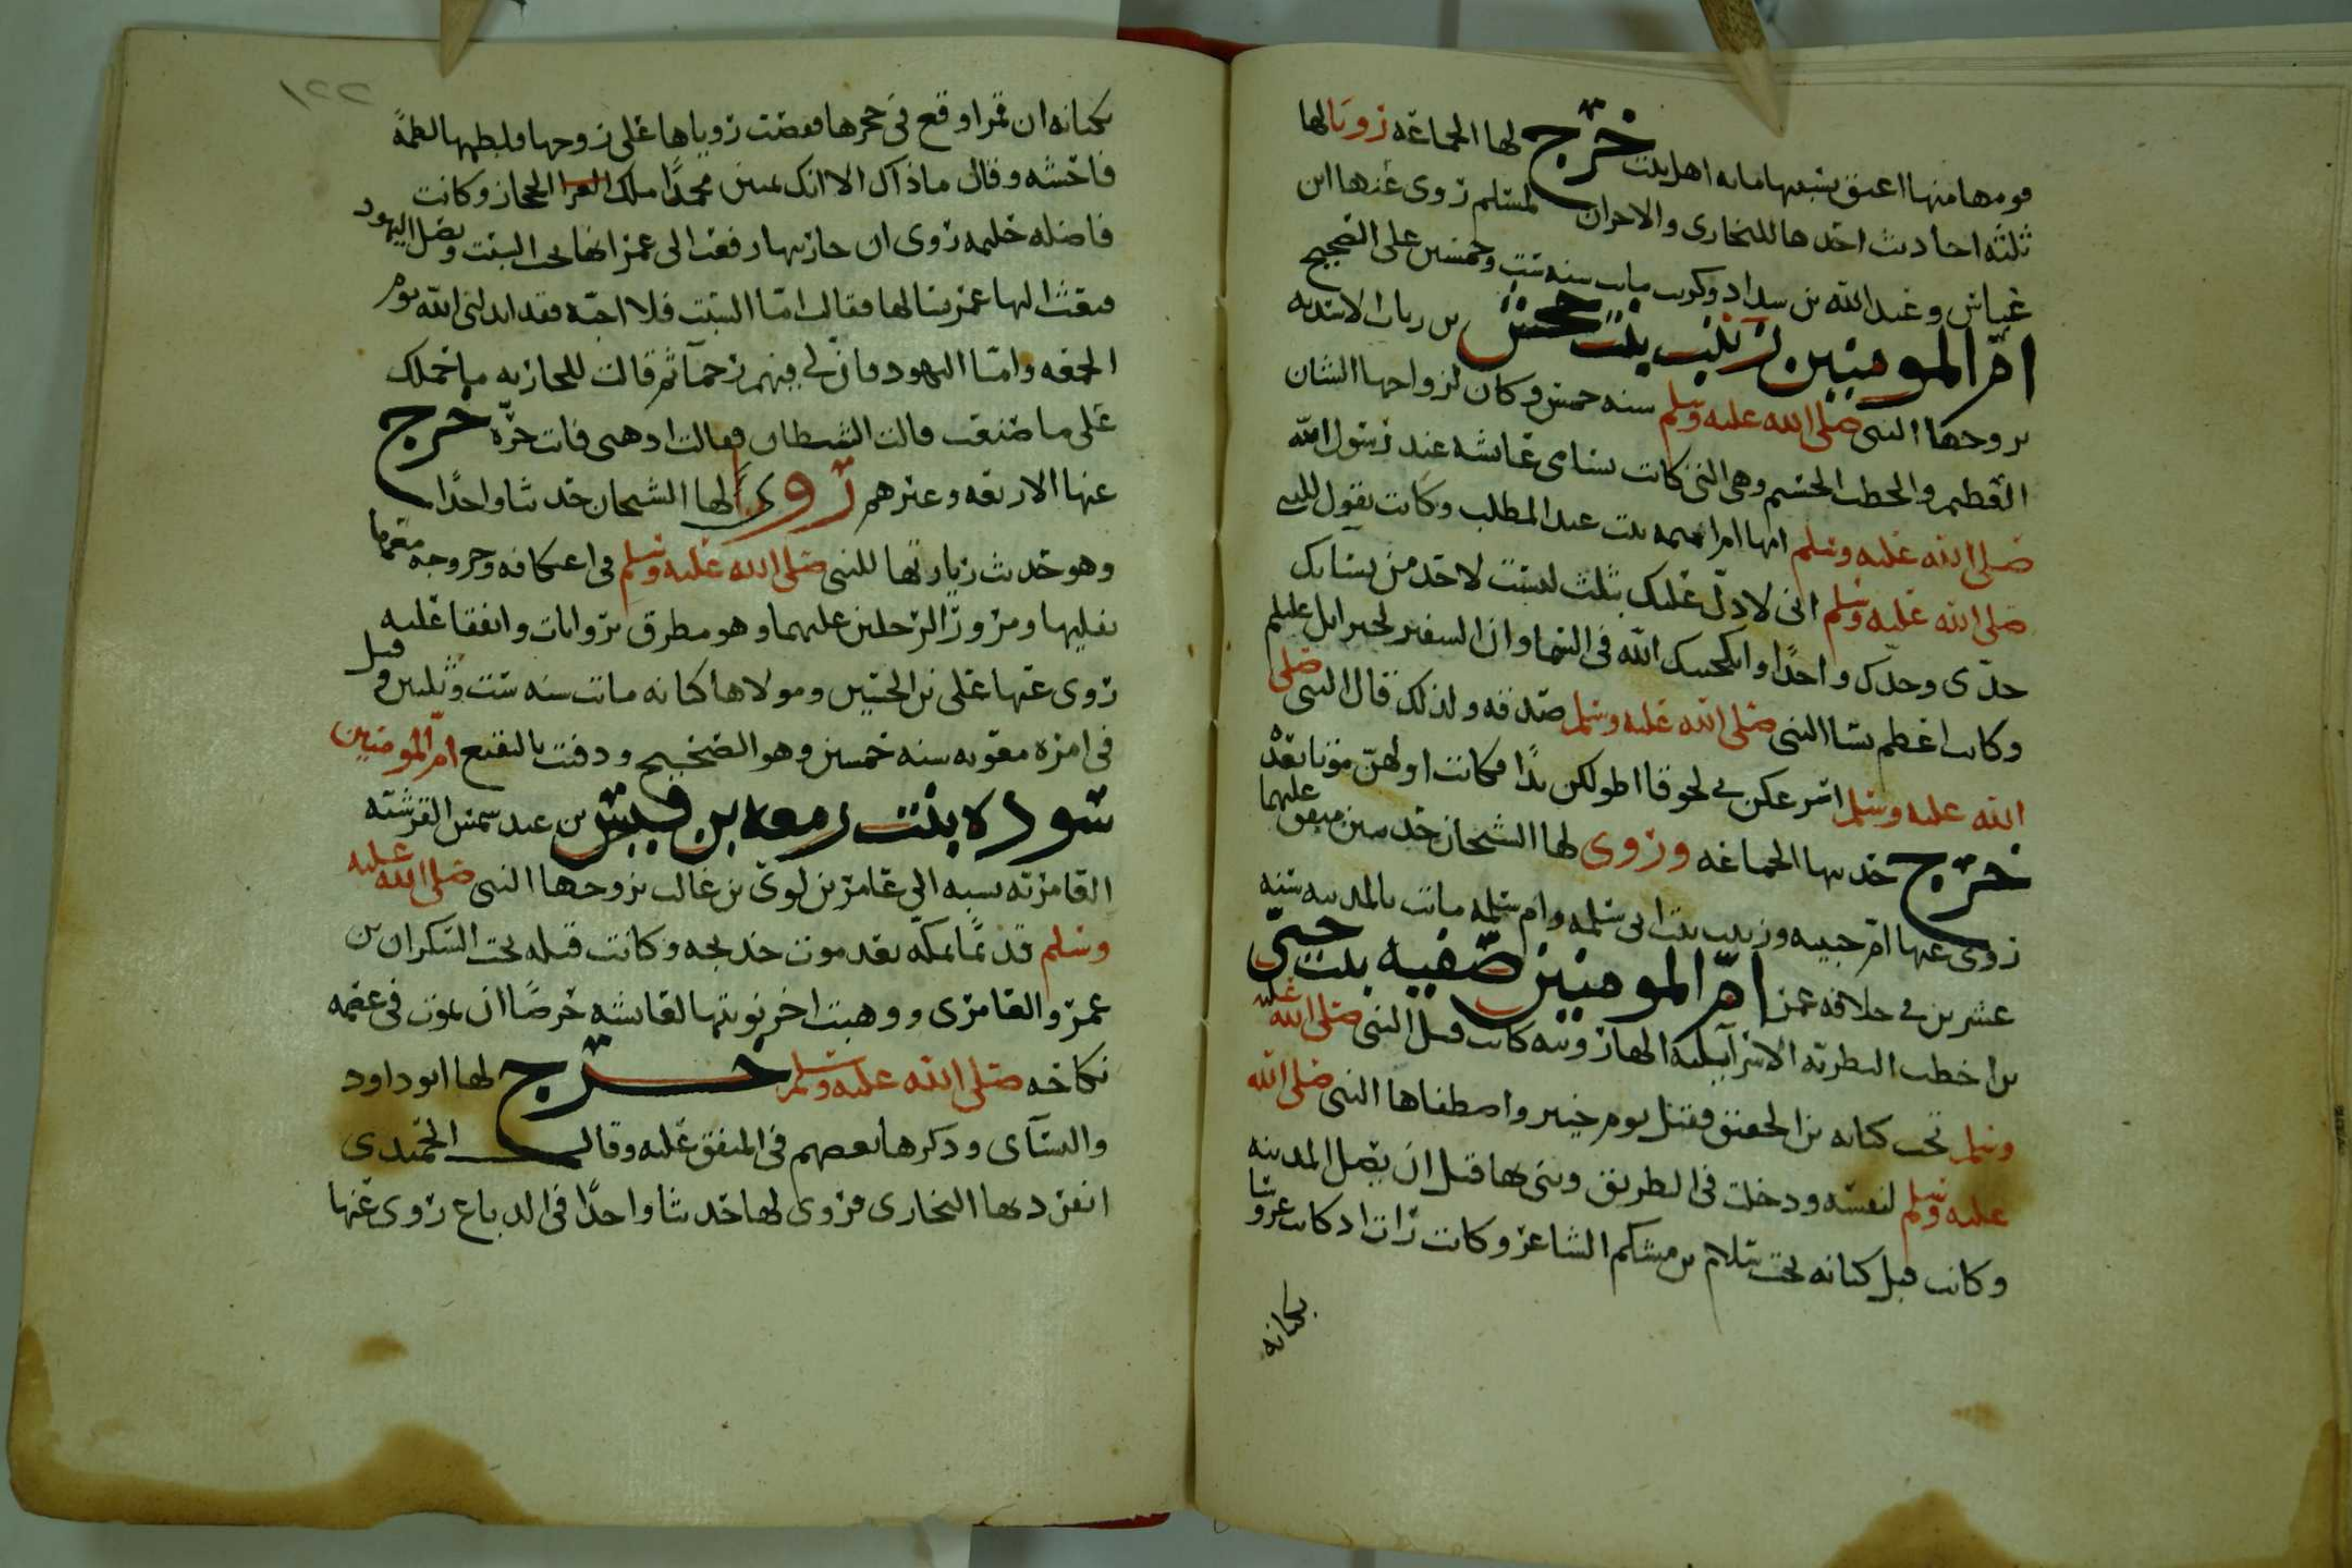 قومها منها اعتق بسببها مايه اهل بيت خرج لها الجماعه رويا لها
ثلثه احاديث احدها للبخاري والاخران لمسلم روى عنها ابن
عباس وعبد الله بن شداد وكريب مات سنه ست وخمسين على الصحيح
ام المومنين زينب بنت جحش بن رياب الاسديه
تزوجها النبي صلى الله عليه وسلم سنه خمس وكان لزواجها الشان
العظيم والخطب الجسيم وهي التي كانت تسامى عائشه عند رسول الله
صلى الله عليه وسلم امها اميمه بنت عبد المطلب وكانت تقول للنبي
صلى الله عليه وسلم اني لادل عليك بثلث ليست لاحد من نسايك
جدي وجدك واحدا وانكحنيك الله في السما وان السفير لجبرايل عليلم
وكانت اعظم نسا النبي صلى الله عليه وسلم صدقه ولذلك قال النبي صلى
الله عليه وسلم اسرعكن بي لحوقا اطولكن يدا فكانت اولهن موتا بعده
خرج حديثها الجماعه وروى لها الشيخان حديثين متفق عليهما
روى عنها ام حبيبه وزينب بنت ابي سلمه وام سلمه ماتت بالمدينه سنه
عشرين في خلافه عمر ام المومنين صفيه بنت حيي
بن اخطب النظريه الاسرآييليه الهارونيه كانت قبل النبي صلى الله عليه
وسلم تحت كنانه بن الحقيق فقتل يوم خيبر واصطفاها النبي صلى الله
عليه وسلم لنفسه ودخلت في الطريق وبنى بها قبل ان يصل المدينه
وكانت قبل كنانه تحت سلام بن مشكم الشاعر وكانت رات اذ كانت عروسا
بكنانه
١٢٢
بكنانه ان قمرا وقع في حجرها فقصت روياها على زوجها فلطمها لطمة
فاحشه وقال ماذاك الا انك تمنين محمدا ملك الحجاز وكانت
فاضله حليمه روى ان جاريتها رفعت الى عمر انها تحب السبت وتصل اليهود
فبعث اليها عمر يسالها فقالت اما السبت فلا احبه فقد ابدلني الله يوم
الجمعه واما اليهود فان لي فيهم رحمآ ثم قالت للجاريه ما حملك
على ما صنعت قالت الشيطان فقالت اذهبي فانت حره خرج
عنها الاربعه وغيرهم روى لها الشيخان حديثا واحدا
وهو حديث زيارتها للنبي صلى الله عليه وسلم في اعتكافه وخروجه معها
يقلبها ومرور الرجلين عليهما وهو مطرق بروايات واتفقا عليه
روى عنها علي بن الحسين ومولاها كنانه ماتت سنه ست وثلثين وقيل
في امره معويه سنه خمسين وهو الصحيح ودفنت بالبقيع ام المومنين
سوده بنت زمعه بن قيس بن عبد شمس القرشيه
العامريه نسبه الى عامر بن لوي بن غالب تزوجها النبي صلى الله عليه
وسلم قديما بمكه بعد موت خديجه وكانت قبله تحت السكران بن
عمرو العامري ووهبت اخر نوبتها لعايشه حرصا ان تموت في عصمه
نكاحه صلى الله عليه وسلم خرج لها ابو داود
والنسآي وذكرها بعضهم في المتفق عليه وقال الحميدي
انفرد بها البخاري فروى لها حديثا واحدا في الدباغ روى عنها